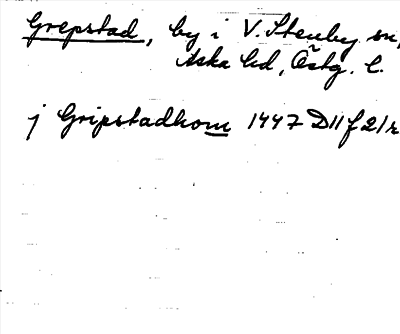 Grepstad, by i V. Stenby sn,
Aska hd, Östg. l.
j Gripstadhom 1447 D11 f 21r